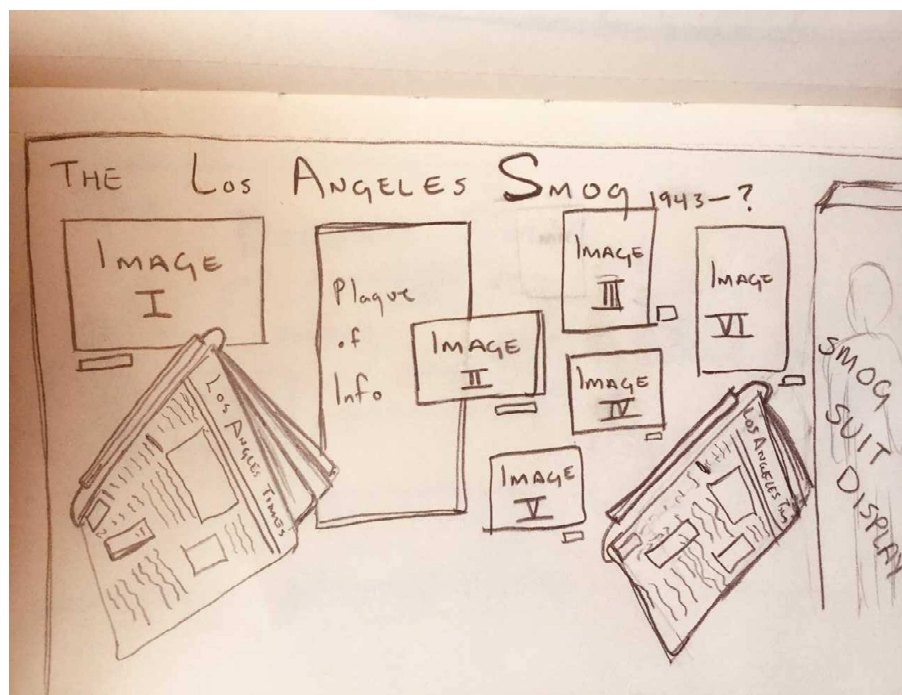 THE LOS ANGELES SMOG 1943-?
IMAGE
I
Plaque
of
Info
IMAGE
II
IMAGE
III
IMAGE
IV
IMAGE
V
IMAGE
VI
LOS ANGELES TIMES
LOS ANGELES TIMES
SMOG
SUIT
DISPLAY